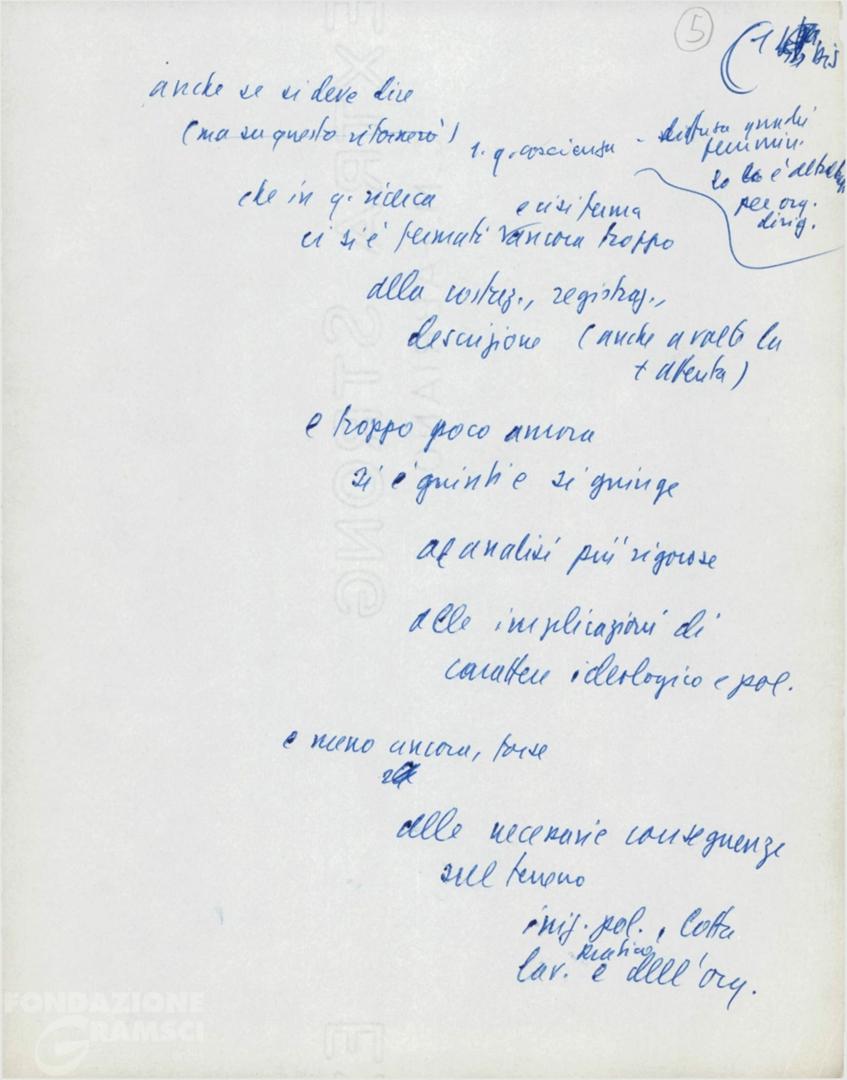 5
(1 bis
anche se si deve dire
(ma su questo ritornerò)
1. q. coscienza - diffusa quadri
femmin.
lo è
per org.
dirig.
che in q. ricerca e ci si ferma
ci si è fermati ancora troppo
alla costraz., registraz.,
descrizione (anche a volte la
+ attenta)
e troppo poco ancora
si è giunti e si giunge
ad analisi più rigorose
alle implicazioni di
carattere ideologico e pol.
e meno ancora, forse
alle necessarie conseguenze
sul terreno
iniz. pol., lotta
pratica
lav. e dell'org.
FONDAZIONE
GRAMSCI
EXTRA STRONG